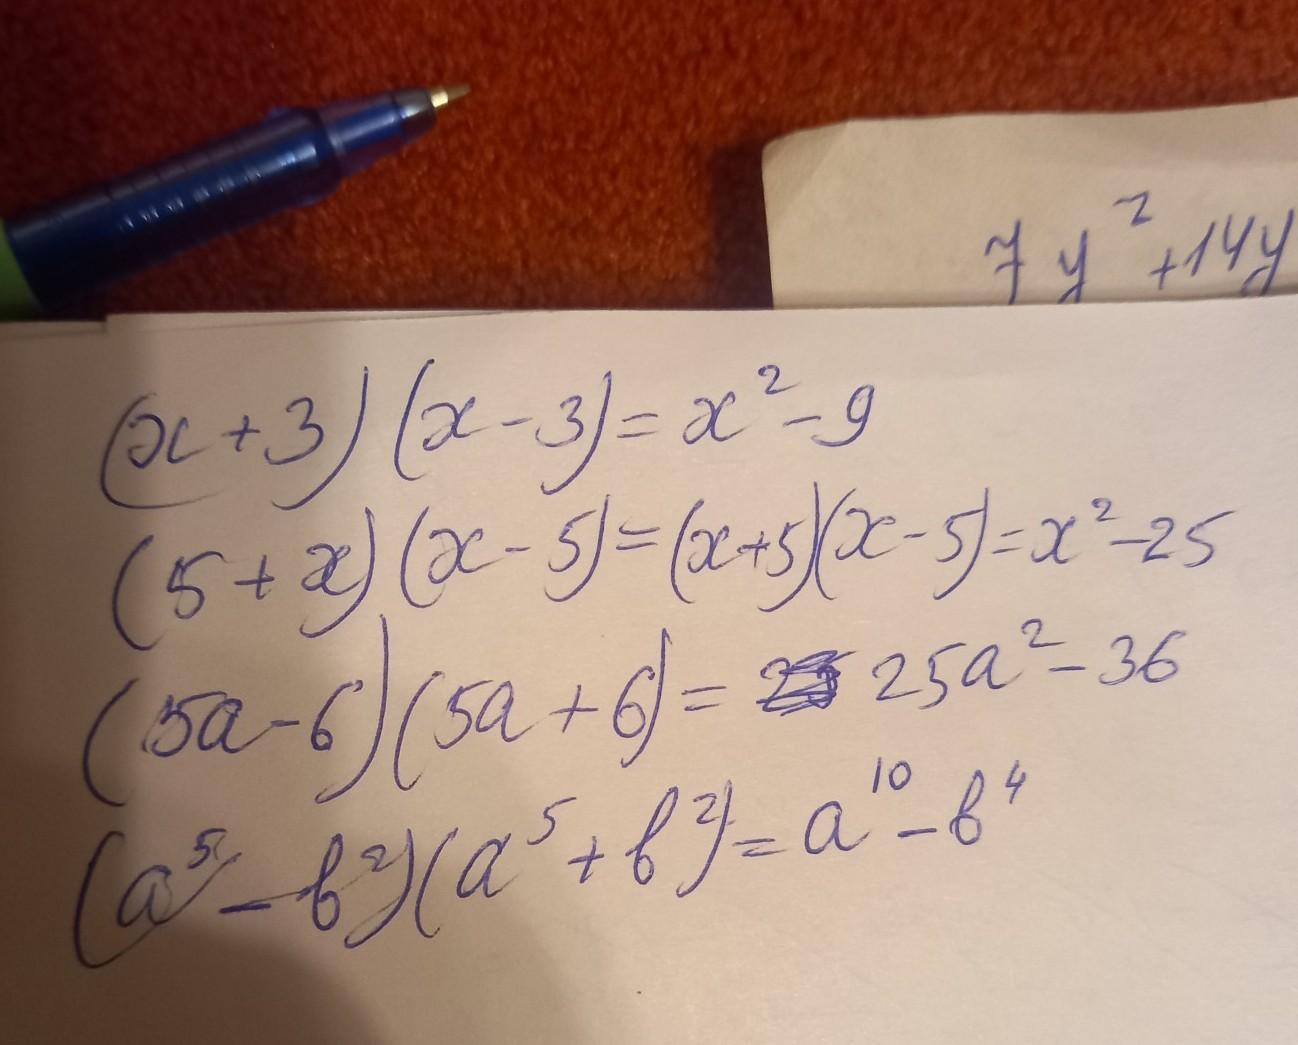 7y² + 14y
(x + 3)(x - 3) = x² - 9
(5 + x)(x - 5) = (x+5)(x - 5) = x² - 25
(5a - 6)(5a + 6) = 25a² - 36
(a⁵ - b²)(a⁵ + b²) = a¹⁰ - b⁴